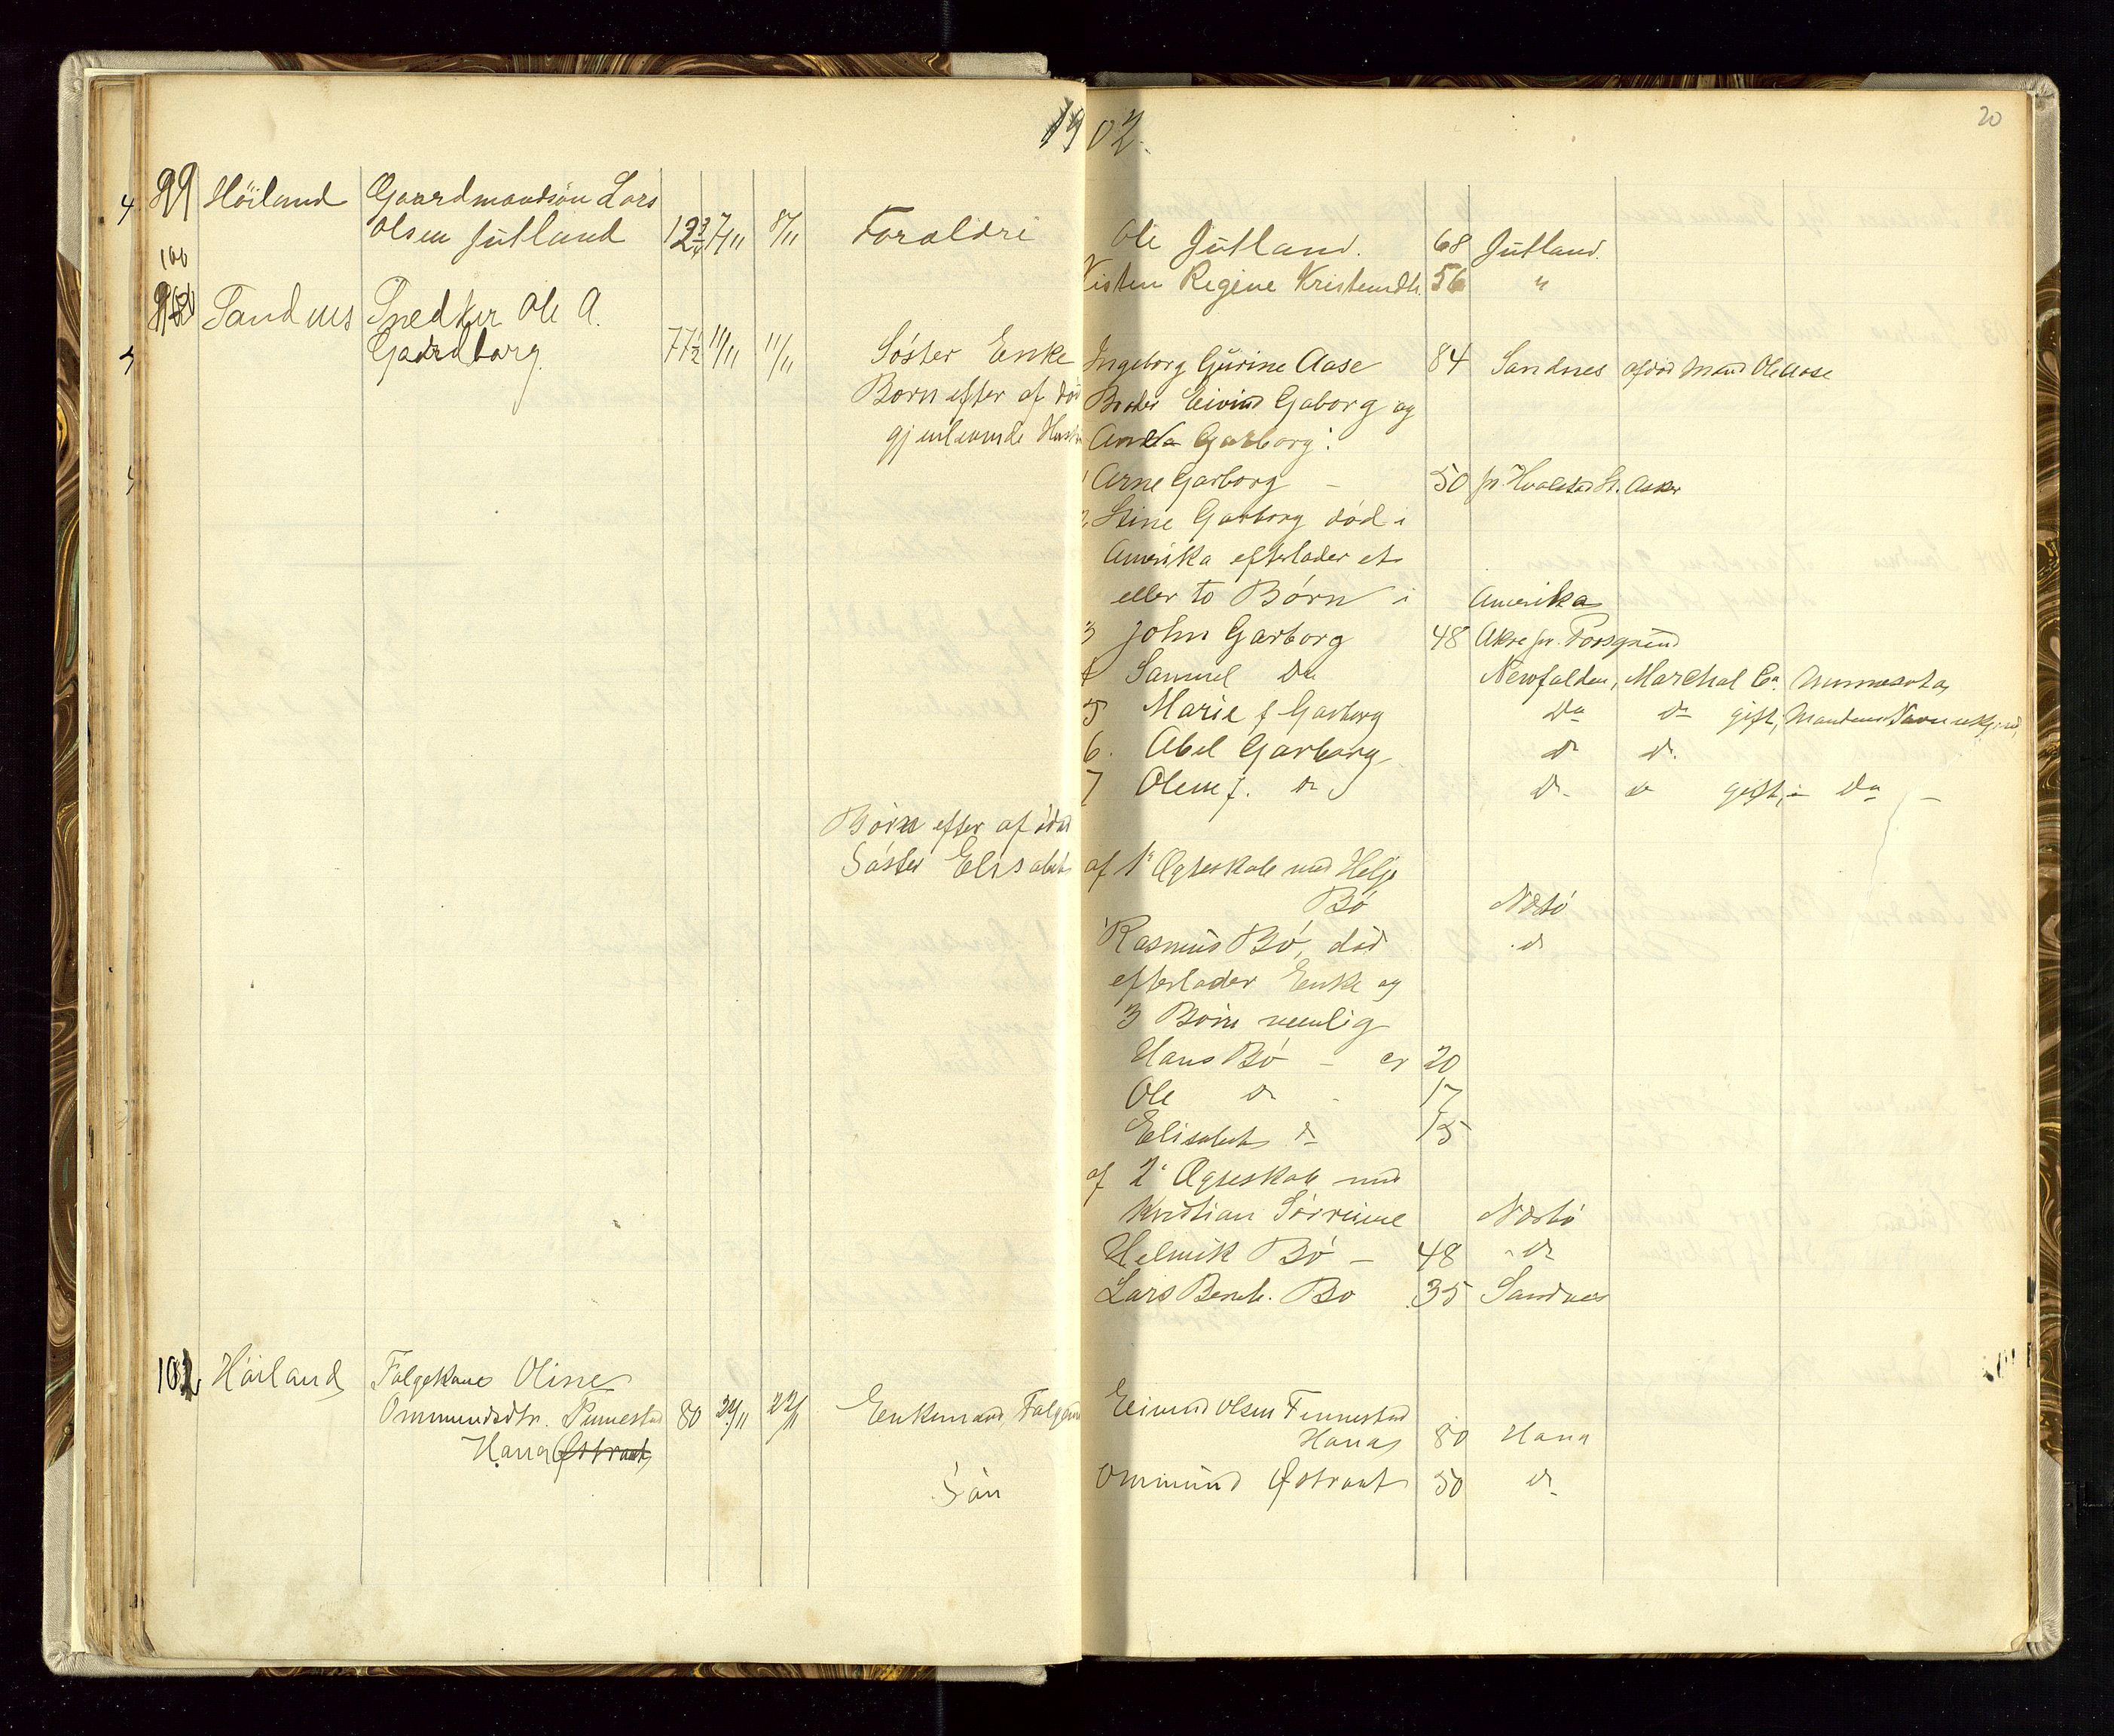 1902.
20
99 Höiland Gaardmandsön Lars
Olsen Jütland 12 7/11 8/11 Foraldre Ole Jütland. 68 Jütland.
Kisten Regine Kristensdtr. 56 "
100
Sandnes Snedker Ole A.
Gaardborg 77½ 11/11 11/11 Söster Enke Ingeborg Gürine Aase 84 Sandnes afdöd Mand Ole Aase
Born efter af död Broder Eivind Gaborg og
gjenlevende Hustru Garborg:
1 Arne Garborg – 50 pr. Hvalstad St. Asker
2 Stine Garborg död i
Amerika efterlader et
eller to Börn i Amerika
3 John Garborg 48 Akre pr. Porsgrund
4 Samuel Do Newfolden, Marchal Co. Minnesota
5 Marie f Garborg Do Do gift, Mandens Navn
6. Abel Garborg Do Do
7 Olene f. Do Do Do gift, – Do –
Börn efter af död
Söster Elisabet af 1e Ægteskab med Helje
Bö Næsbö
Rasmus Bö, död Do
efterlader Enke og
3 Börn nemlig
Hans Bö – er 20
Ole Do - 17
Elisabet Do 15
af 2e Ægteskab med
Kristian
Helmik Bö – 48 Do
Lars Bernh. Bö 35 Sandnes
102 Höiland Folgekone Oline
Ommundsdtr. 80 22/11 Enkemand Eivind Olsen Finnestad
Hana Östraat Hana 80 Hana
Sön Ommünd Östraat 50 Do